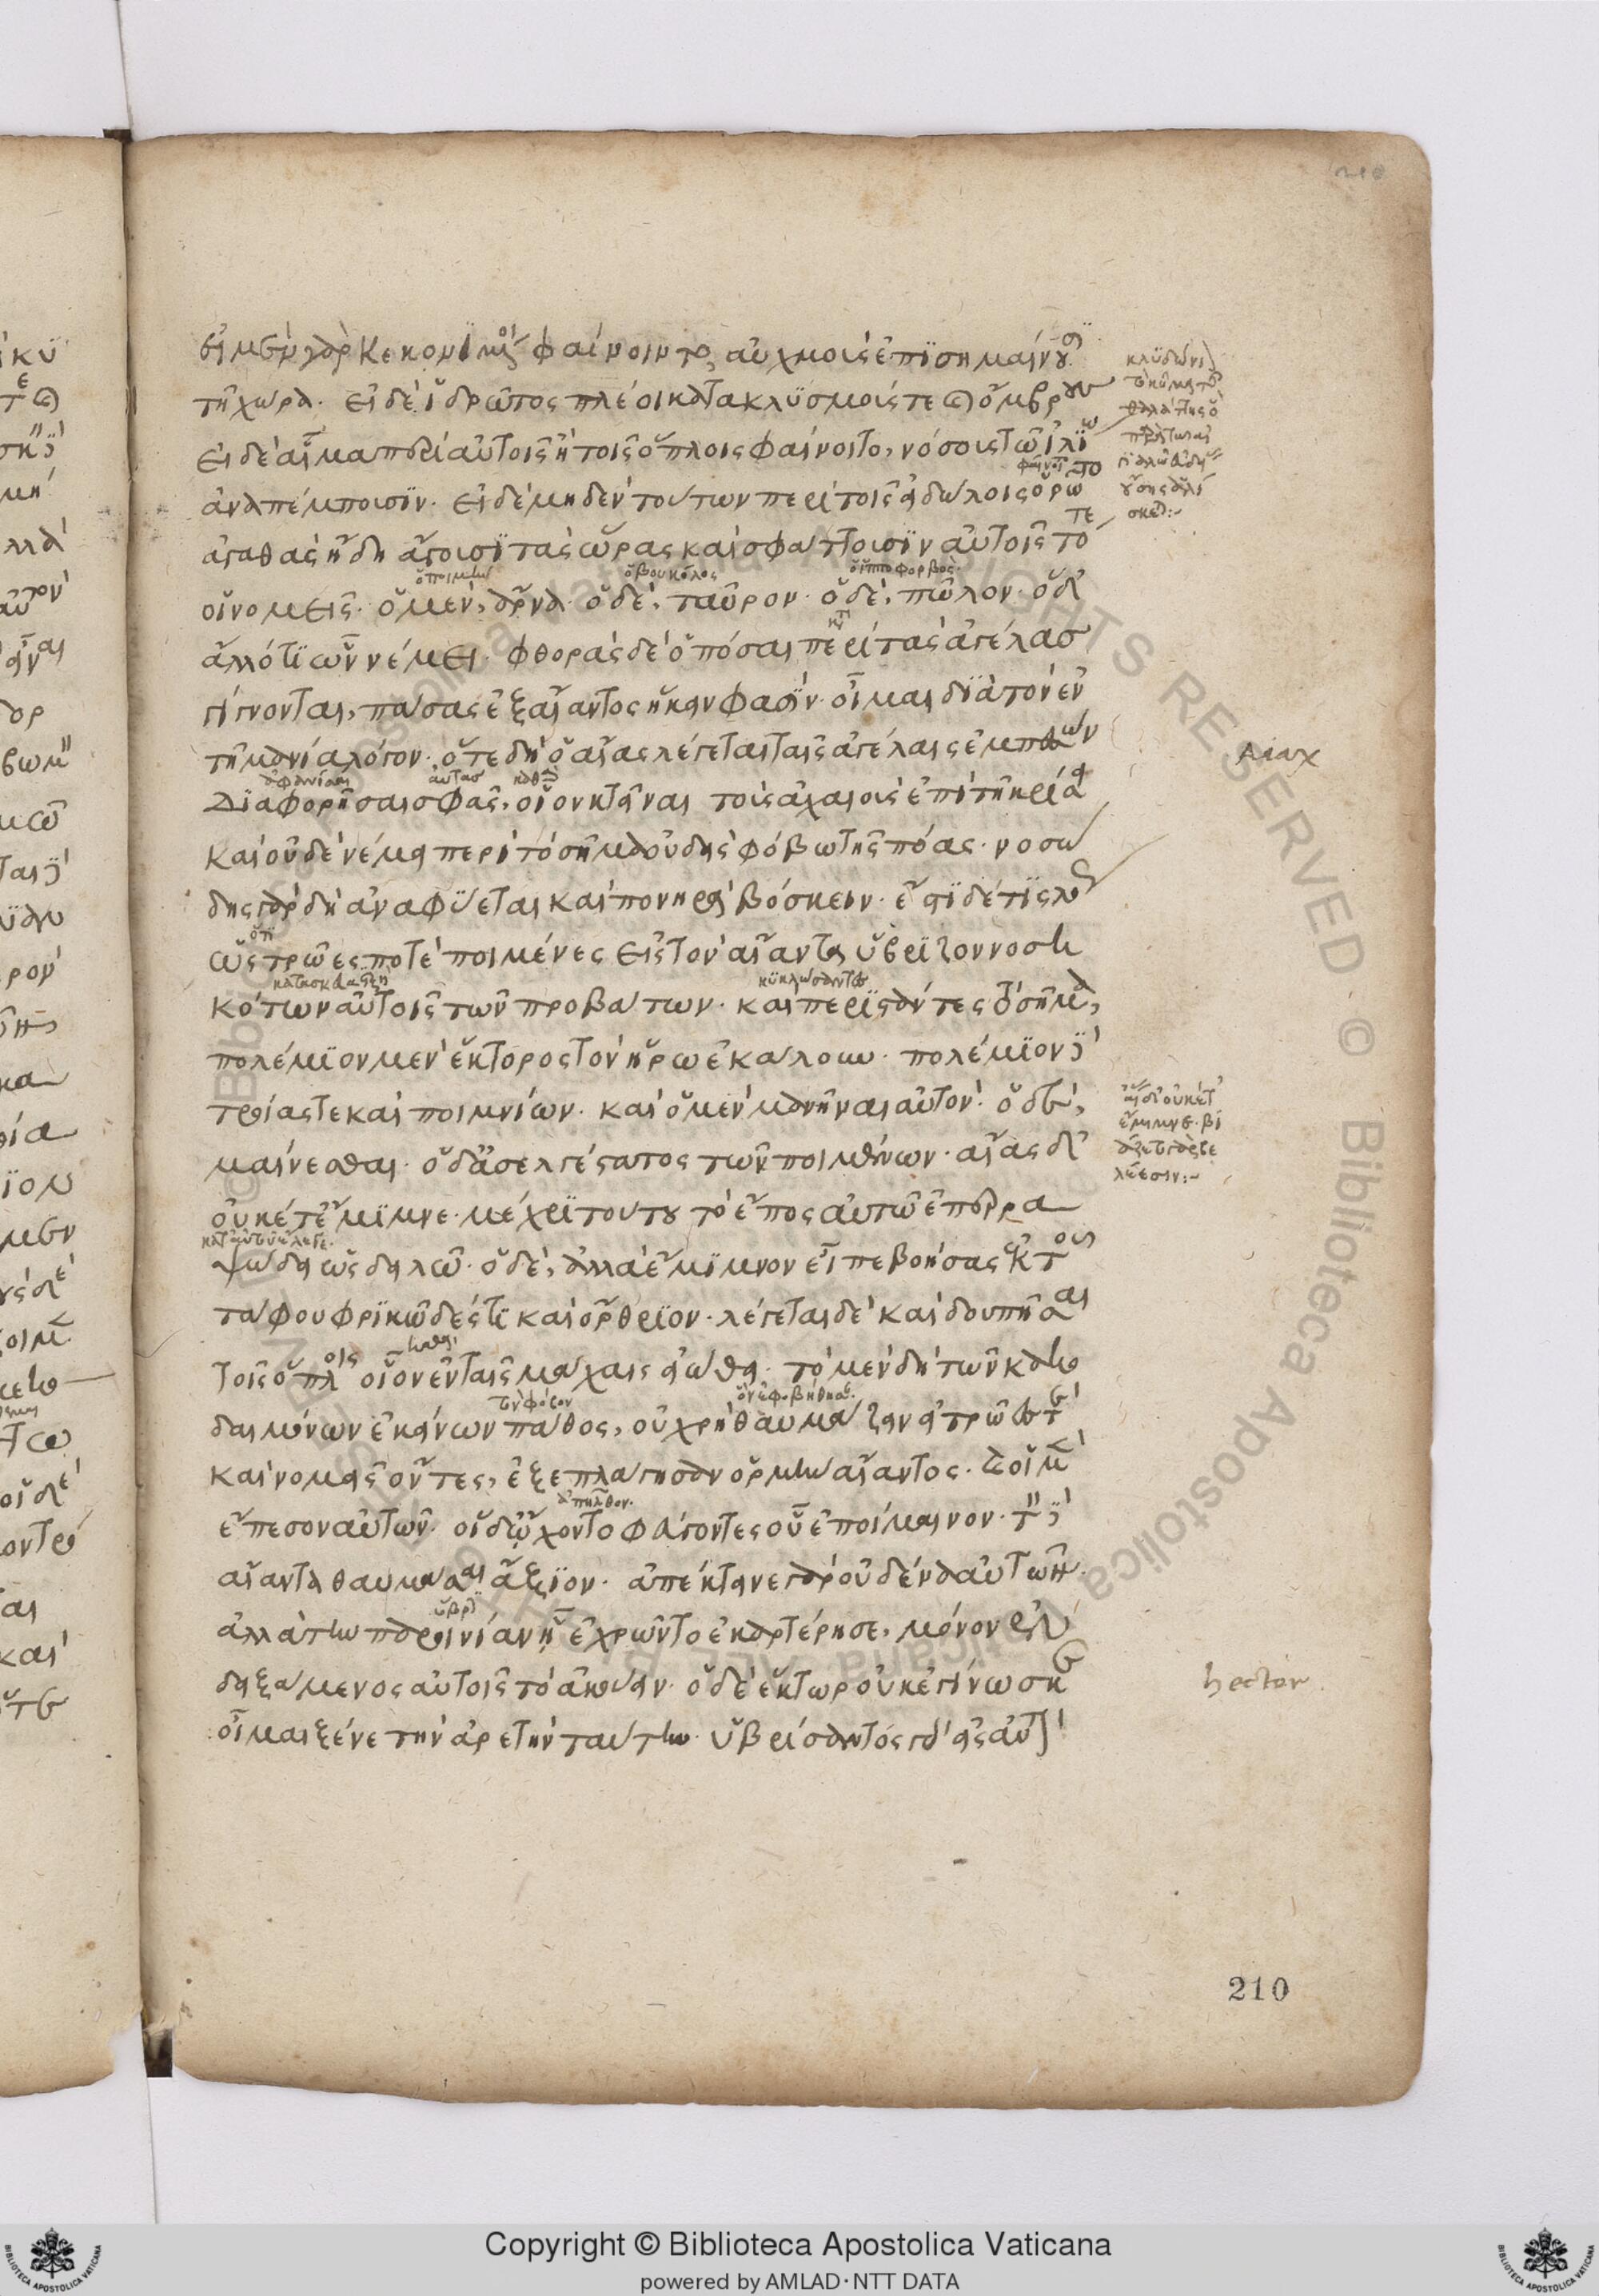 εἰ μὲν γὰρ κεκονιμένοι φαίνοιντο, αὐχμοὺς ἐπισημαίνουσι
τῆ χώρα. εἰ δὲ ἱδρῶτος πλέοι κατακλυσμούς τε καὶ ὄμβρους
εἰ δὲ αἷμα περὶ αὐτοῖς ἢ τοῖς ὅπλοις φαίνοιτο, νόσους τῶ ἰλίω
ἀναπέμπουσιν. εἰ δὲ μηδὲν τούτων περὶ τοῖς εἰδώλοις ὁρῶτο
ἀγαθὰς ἤδη ἄγουσι τὰς ὥρας καὶ σφάττουσιν αὐτοῖς τότε
ὁ ποιμὴν
ὁ βουκόλος
ὁ ἱπποφορβός
οἱ νομεῖς. ὁ μὲν, ἄρνα. ὁ δὲ, ταῦρον. ὁ δὲ, πῶλον. ὁ δὲ
ἄλλό τι ὧν νέμει. φθορὰς δὲ ὁπόσαι περὶ τὰς ἀγέλας
γίγνονται, πάσας ἐξ αἴαντος ἥκειν φασίν. οἶμαι διὰ τὸν ἐν
τῆ μανία λόγον. ὅτε δὴ ὁ αἴας λέγεται ταῖς ἀγέλαις ἐμπεσὼν
Διαφορῆσαι σφᾶς, οἷον κτεῖναι τοὺς ἀχαιοὺς ἐπὶ τῆ κρίσει
καὶ οὐδὲ νέμει περὶ τὸ σῆμα οὐδεὶς φόβω τῆς πόας. νοσώ
δης γὰρ δὴ ἀναφύεται καὶ πονηρὰ βόσκειν. ἔστι δέ τις λόγος
ὡς τρῶές ποτε ποιμένες εἰς τὸν αἴαντα ὕβριζον νοση
κυκλώσαντες
κότων αὐτοῖς τῶν προβάτων. καὶ περιστάντες τὸ σῆμα,
πολέμιον μὲν ἕκτορος τὸν ἥρω ἐκάλουν. πολέμιον δὲ
τροίας τε καὶ ποιμνίων. καὶ ὁ μὲν μανῆναι αὐτόν. ὁ δὲ,
μαίνεσθαι. ὁ δ' ἀσελγέστατος τῶν ποιμένων. αἴας δ'
οὐκέτ' ἔμιμνε. μέχρι τούτου τὸ ἔπος αὐτῶ ἐπερρα
ψώδει ὡς δειλῶ. ὁ δὲ, ἀλλὰ ἔμιμνον εἶπε βοήσας ἐκ τοῦ
τάφου φρικῶδές τι καὶ ὄρθριον. λέγεται δὲ καὶ δουπῆσαι
τοῖς ὅπλοις οἷον ἐν ταῖς μάχαις εἰώθει. τὸ μὲν δὴ τῶν κακο
τὸν φόβον
δαιμόνων ἐκείνων πάθος, οὐ χρὴ θαυμάζειν εἰ τρῶές τε
καὶ νομεῖς ὄντες, ἐξεπλάγησαν ὁρμὴν αἴαντος. καὶ οἱ μὲν
ἀπῆλθον.
ἔπεσον αὐτῶν. οἱ δ' ὤχοντο φεύγοντες οὗ ἐποίμαινον. τὸν δὲ
αἴαντα θαυμάσαι ἄξιον. ἀπέκτεινε γὰρ οὐδένα αὐτῶν.
ἀλλὰ τὴν παροινίαν ᾗ ἐχρῶντο ἐκαρτέρησε, μόνον ἐν
δειξάμενος αὐτοῖς τὸ ἀκούειν. ὁ δὲ ἕκτωρ οὐκ ἐγίνωσκε
οἶμαι ξένε τὴν ἀρετὴν ταύτην. ὑβρίσαντος γὰρ εἰς αὐτὸν
Aiax
αἴας δ' οὐκέτ'
ἔμιμνε. βι
άζετο γὰρ βε
λέεσσιν:~
hector
210
Copyright © Biblioteca Apostolica Vaticana
powered by AMLAD·NTT DATA